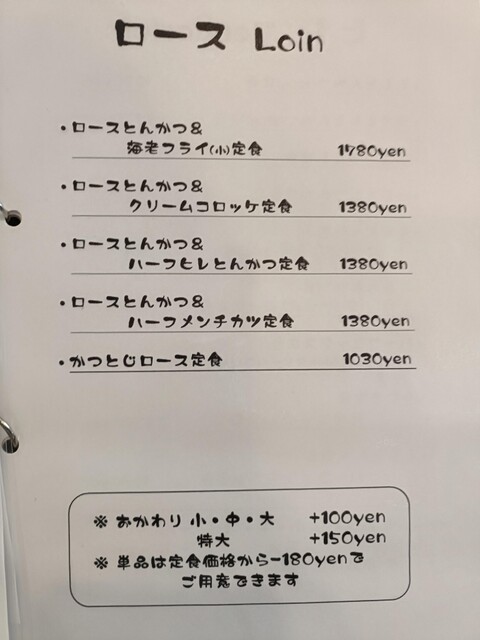 ロース Loin
・ロースとんかつ&
海老フライ(小)定食 1780yen
・ロースとんかつ&
クリームコロッケ定食 1380yen
・ロースとんかつ&
ハーフヒレとんかつ定食 1380yen
・ロースとんかつ&
ハーフメンチカツ定食 1380yen
・かつとじロース定食 1030yen
※ おかわり 小・中・大 +100yen
特大 +150yen
※ 単品は定食価格から-180yenで
ご用意できます